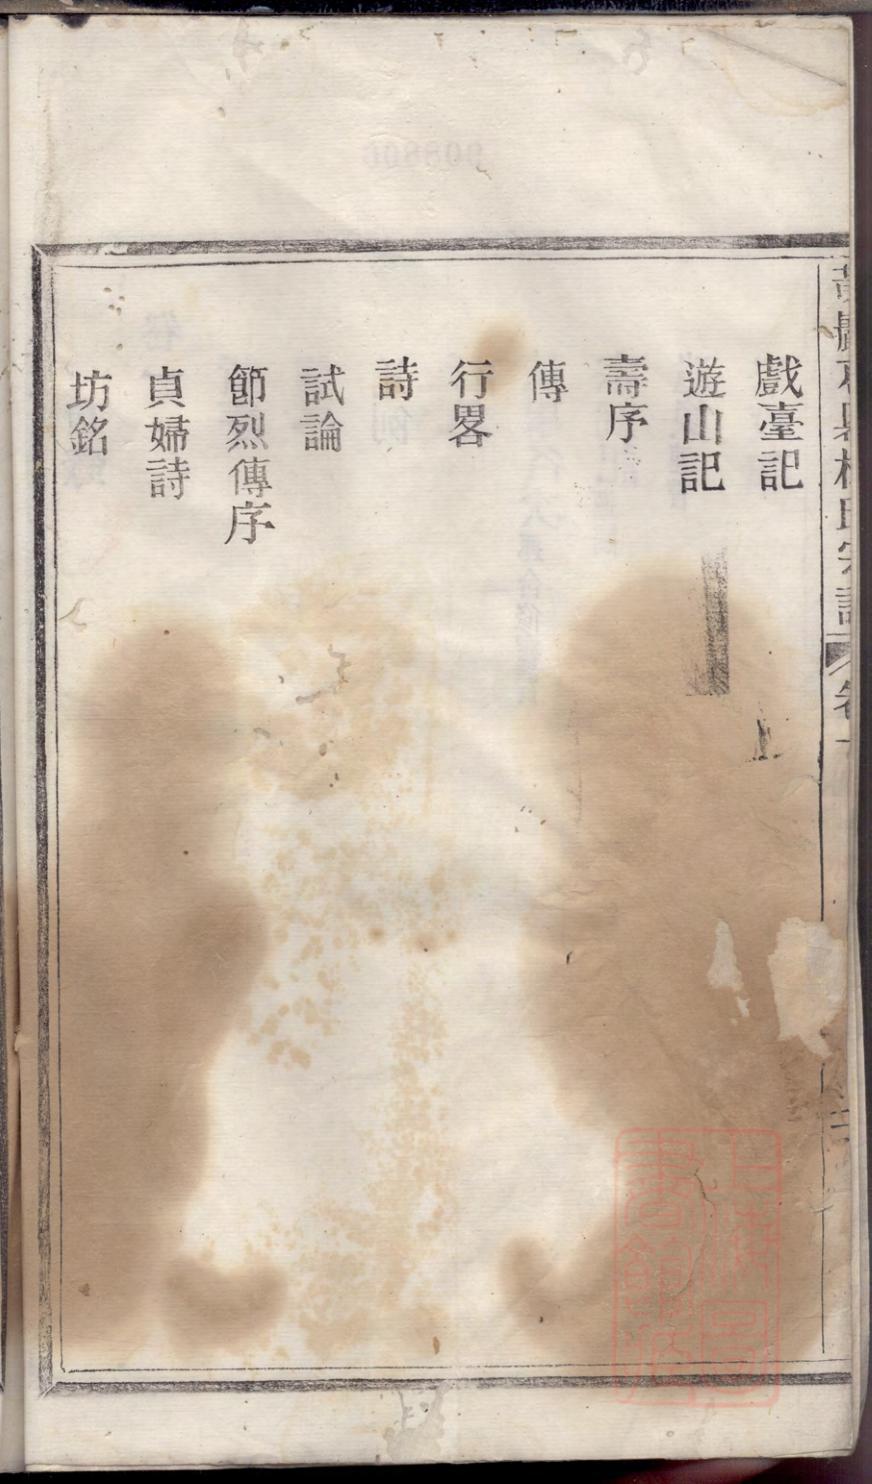 戲臺記
遊山記
壽序
傳
行畧
詩
試論
節烈傳序
貞婦詩
坊銘